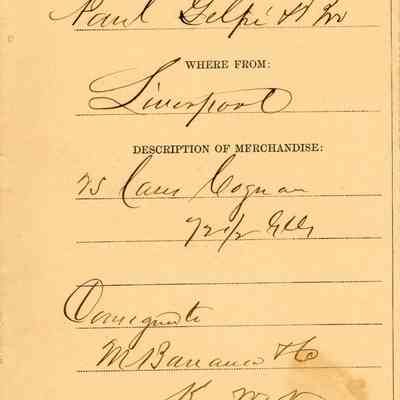 Paul Gelpi & Bro
WHERE FROM:
Liverpool
DESCRIPTION OF MERCHANDISE:
25 Cases Cognac
Consigned to
M Barranco & Co
K W